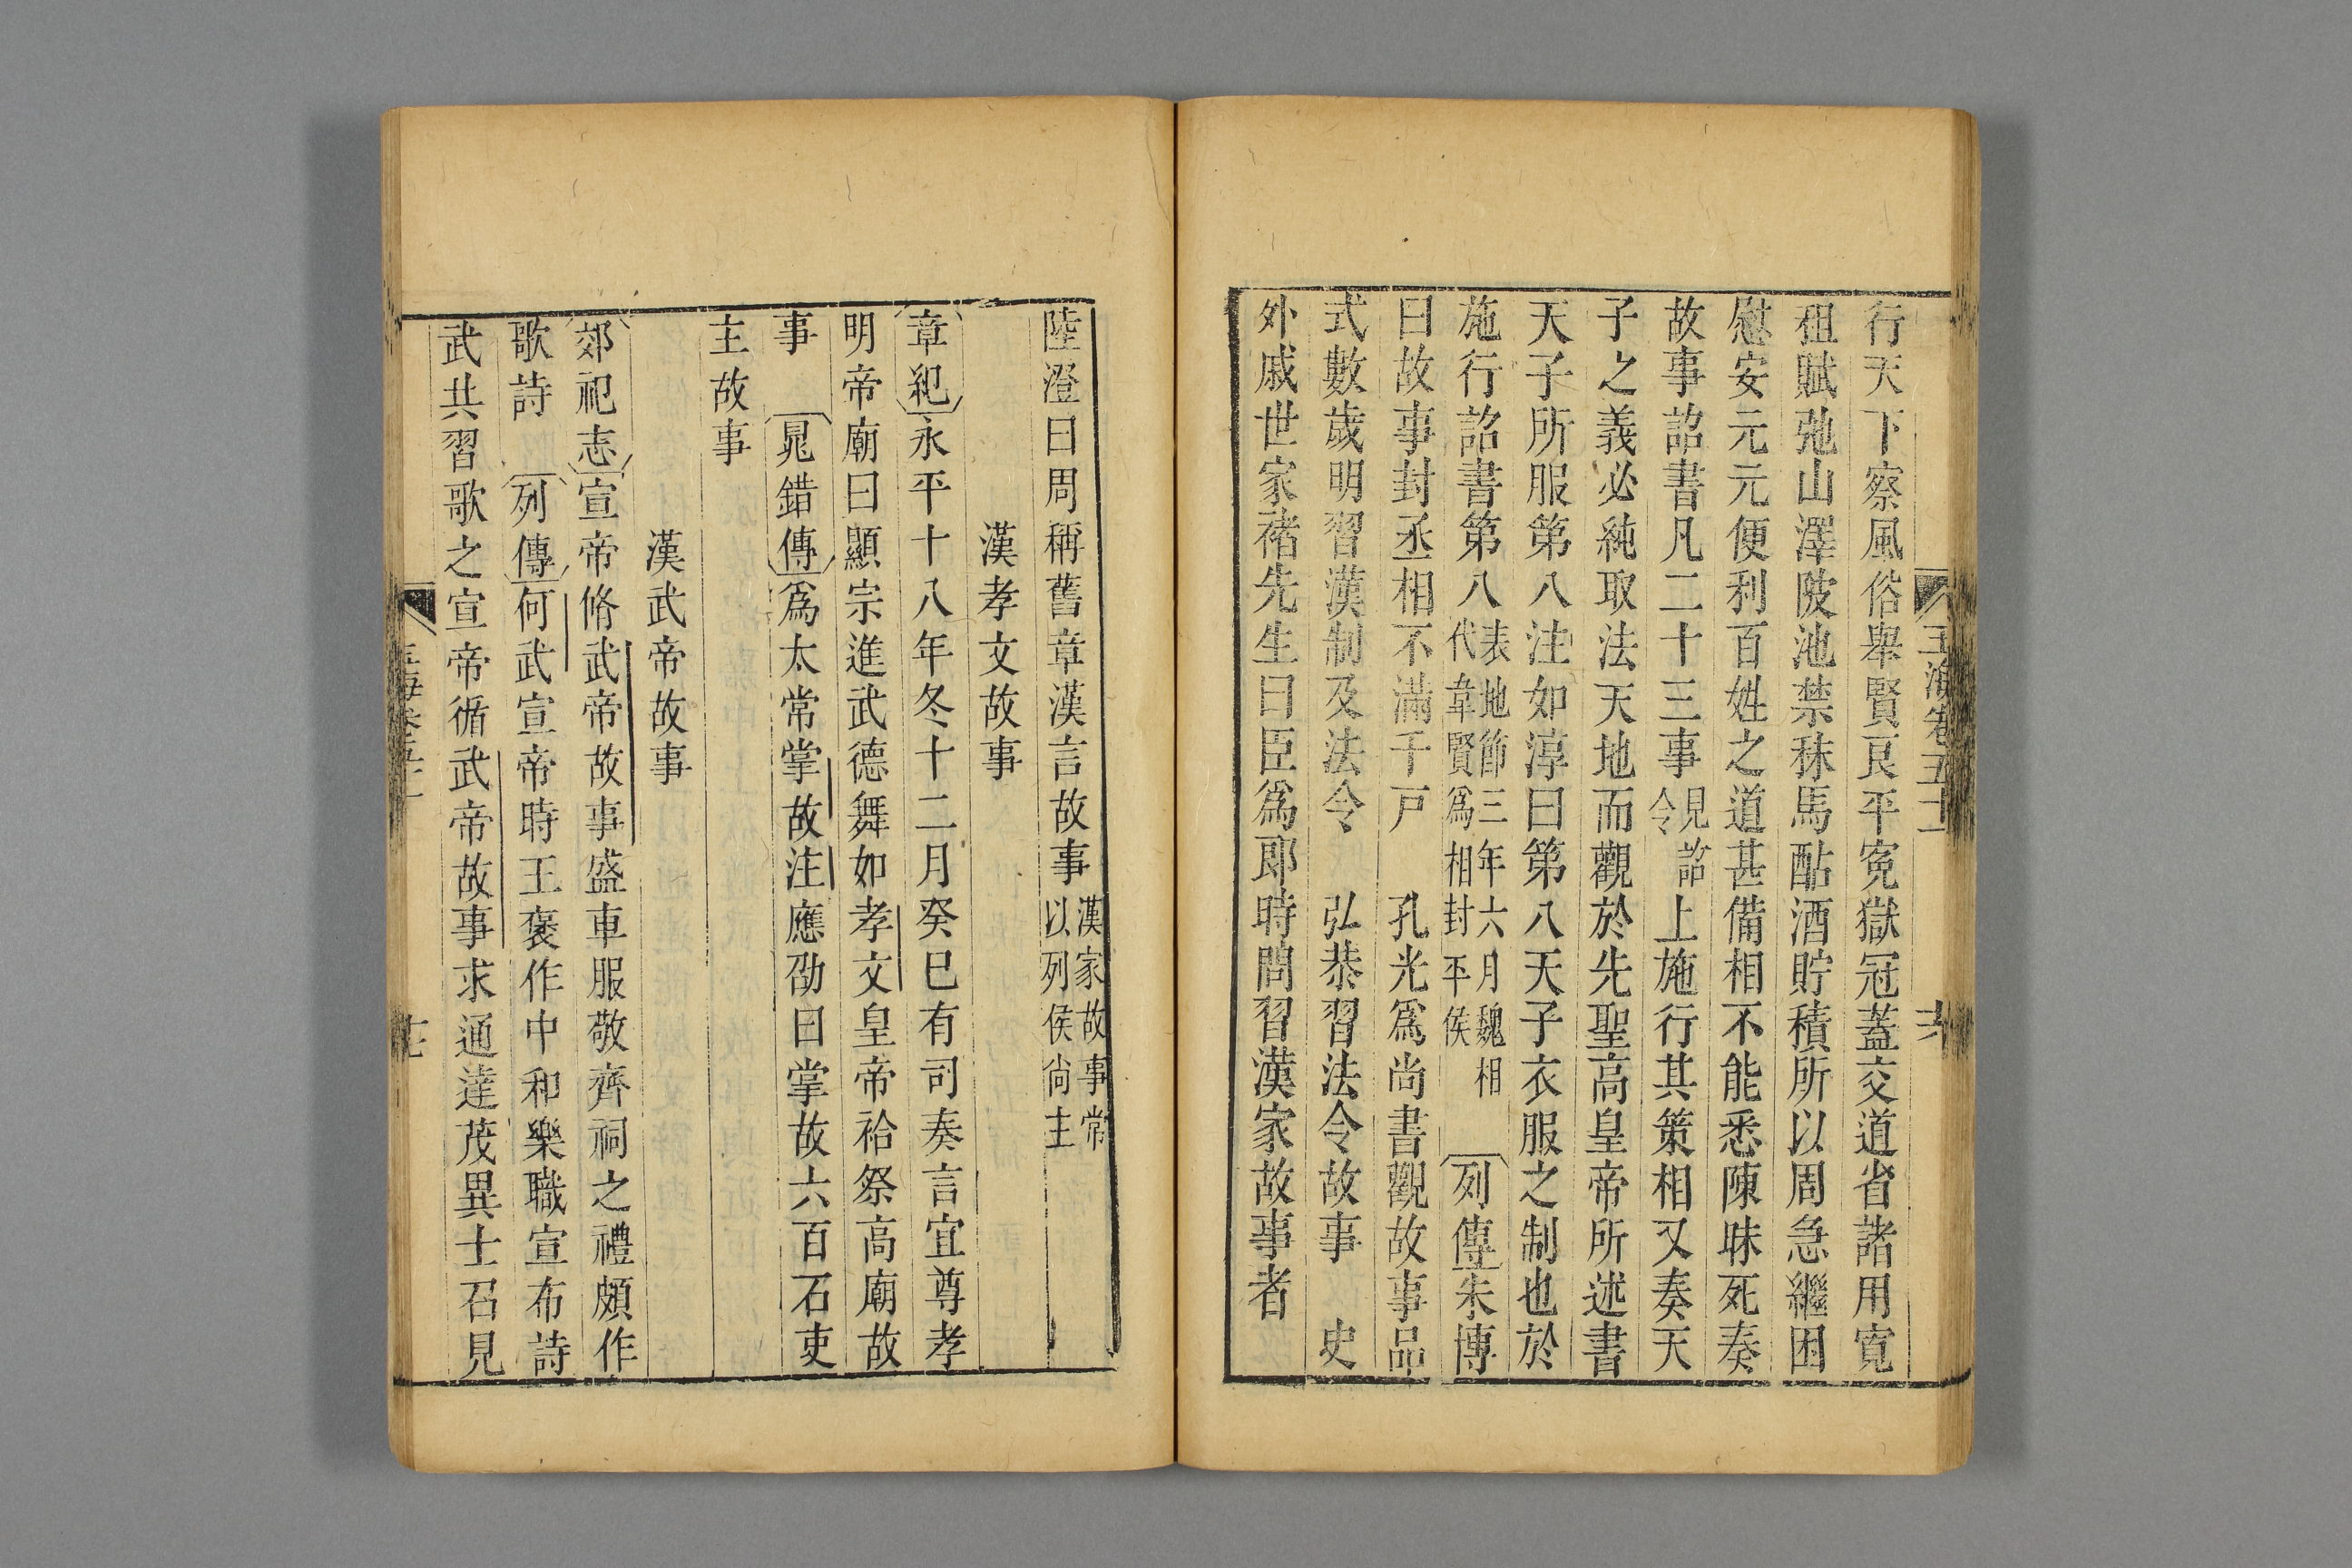 行天下察風俗舉賢良平寃獄冠蓋交道省諸用寬
租賦弛山澤陂池禁秣馬酤酒貯積所以周急繼困
慰安元元便利百姓之道甚備相不能悉陳昧死奏
故事詔書凡二十三事見詔令上施行其策相又奏天
子之義必純取法天地而觀於先聖高皇帝所述書
天子所服第八注如淳曰第八天子衣服之制也於
施行詔書第八表地節三年六月魏相代韋賢爲相封平侯 列傳朱博
曰故事封丞相不滿千戸 孔光爲尚書觀故事品
式數歲明習漢制及法令 弘恭習法令故事 史
外戚世家褚先生曰臣爲郎時問習漢家故事者
陸澄曰周稱舊章漢言故事漢家故事常以列侯尚主
漢孝文故事
章紀永平十八年冬十二月癸巳有司奏言宜尊孝
明帝廟曰顯宗進武德舞如孝文皇帝祫祭高廟故
事 晁錯傳爲太常掌故注應劭曰掌故六百石吏
主故事
漢武帝故事
郊祀志宣帝脩武帝故事盛車服敬齊祠之禮頗作
歌詩 列傳何武宣帝時王襃作中和樂職宣布詩
武共習歌之宣帝循武帝故事求通達茂異士召見